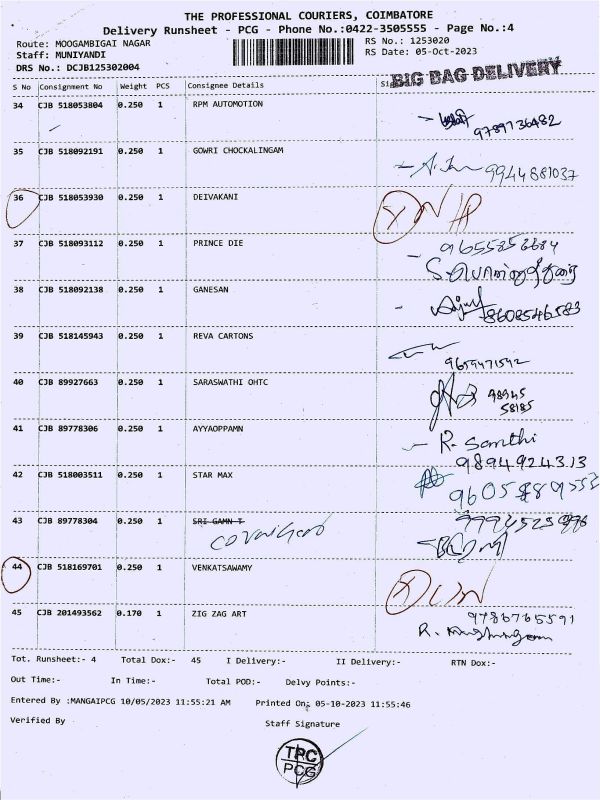 THE PROFESSIONAL COURIERS, COIMBATORE
Delivery Runsheet - PCG - Phone No.:0422-3505555 - Page No.:4
Route: MOOGAMBIGAI NAGAR RS No.: 1253020
Staff: MUNIYANDI RS Date: 05-Oct-2023
DRS No.: DCJB125302004
BIG BAG DELIVERY
S No Consignment No Weight PCS Consignee Details
34 CJB 518053804 0.250 1 RPM AUTOMOTION
9789736482
35 CJB 518092191 0.250 1 GOWRI CHOCKALINGAM
9944881037
36 CJB 518053930 0.250 1 DEIVAKANI
37 CJB 518093112 0.250 1 PRINCE DIE
9655852684
38 CJB 518092138 0.250 1 GANESAN
8608546583
39 CJB 518145943 0.250 1 REVA CARTONS
9659471542
40 CJB 89927663 0.250 1 SARASWATHI OHTC
98945
58185
41 CJB 89778306 0.250 1 AYYAOPPAMN
R. Santhi
9894924313
42 CJB 518003511 0.250 1 STAR MAX
43 CJB 89778304 0.250 1 SRI GAMN T
44 CJB 518169701 0.250 1 VENKATSAWAMY
45 CJB 201493562 0.170 1 ZIG ZAG ART
9786765591
Tot. Runsheet:- 4 Total Dox:- 45 I Delivery:- II Delivery:- RTN Dox:-
Out Time:- In Time:- Total POD:- Delvy Points:-
Entered By :MANGAIPCG 10/05/2023 11:55:21 AM Printed On: 05-10-2023 11:55:46
Verified By Staff Signature
TPC
PCG